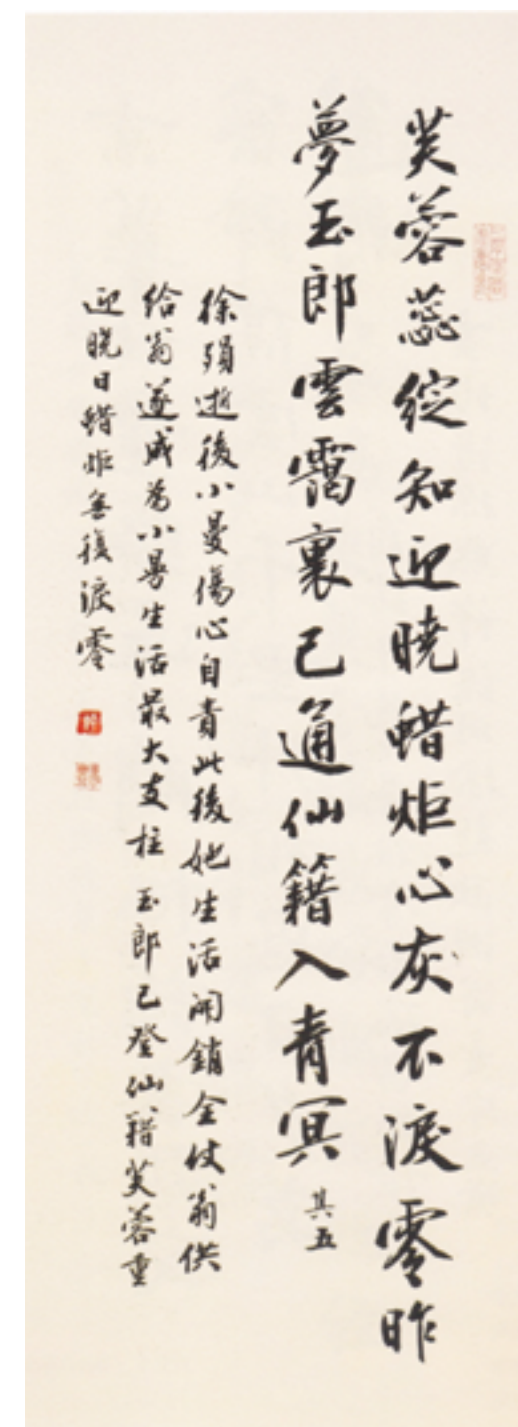 芙蓉蕊綻知迎曉蜡炬心灰不淚零昨
夢玉郎雲靄裏已通仙籍入青冥 其五
徐殞逝後小曼傷心自責此後她生活開銷全仗翁供
給翁遂成為小曼生活最大支柱 玉郎已登仙籍芙蓉重
迎曉日蜡炬無復淚零